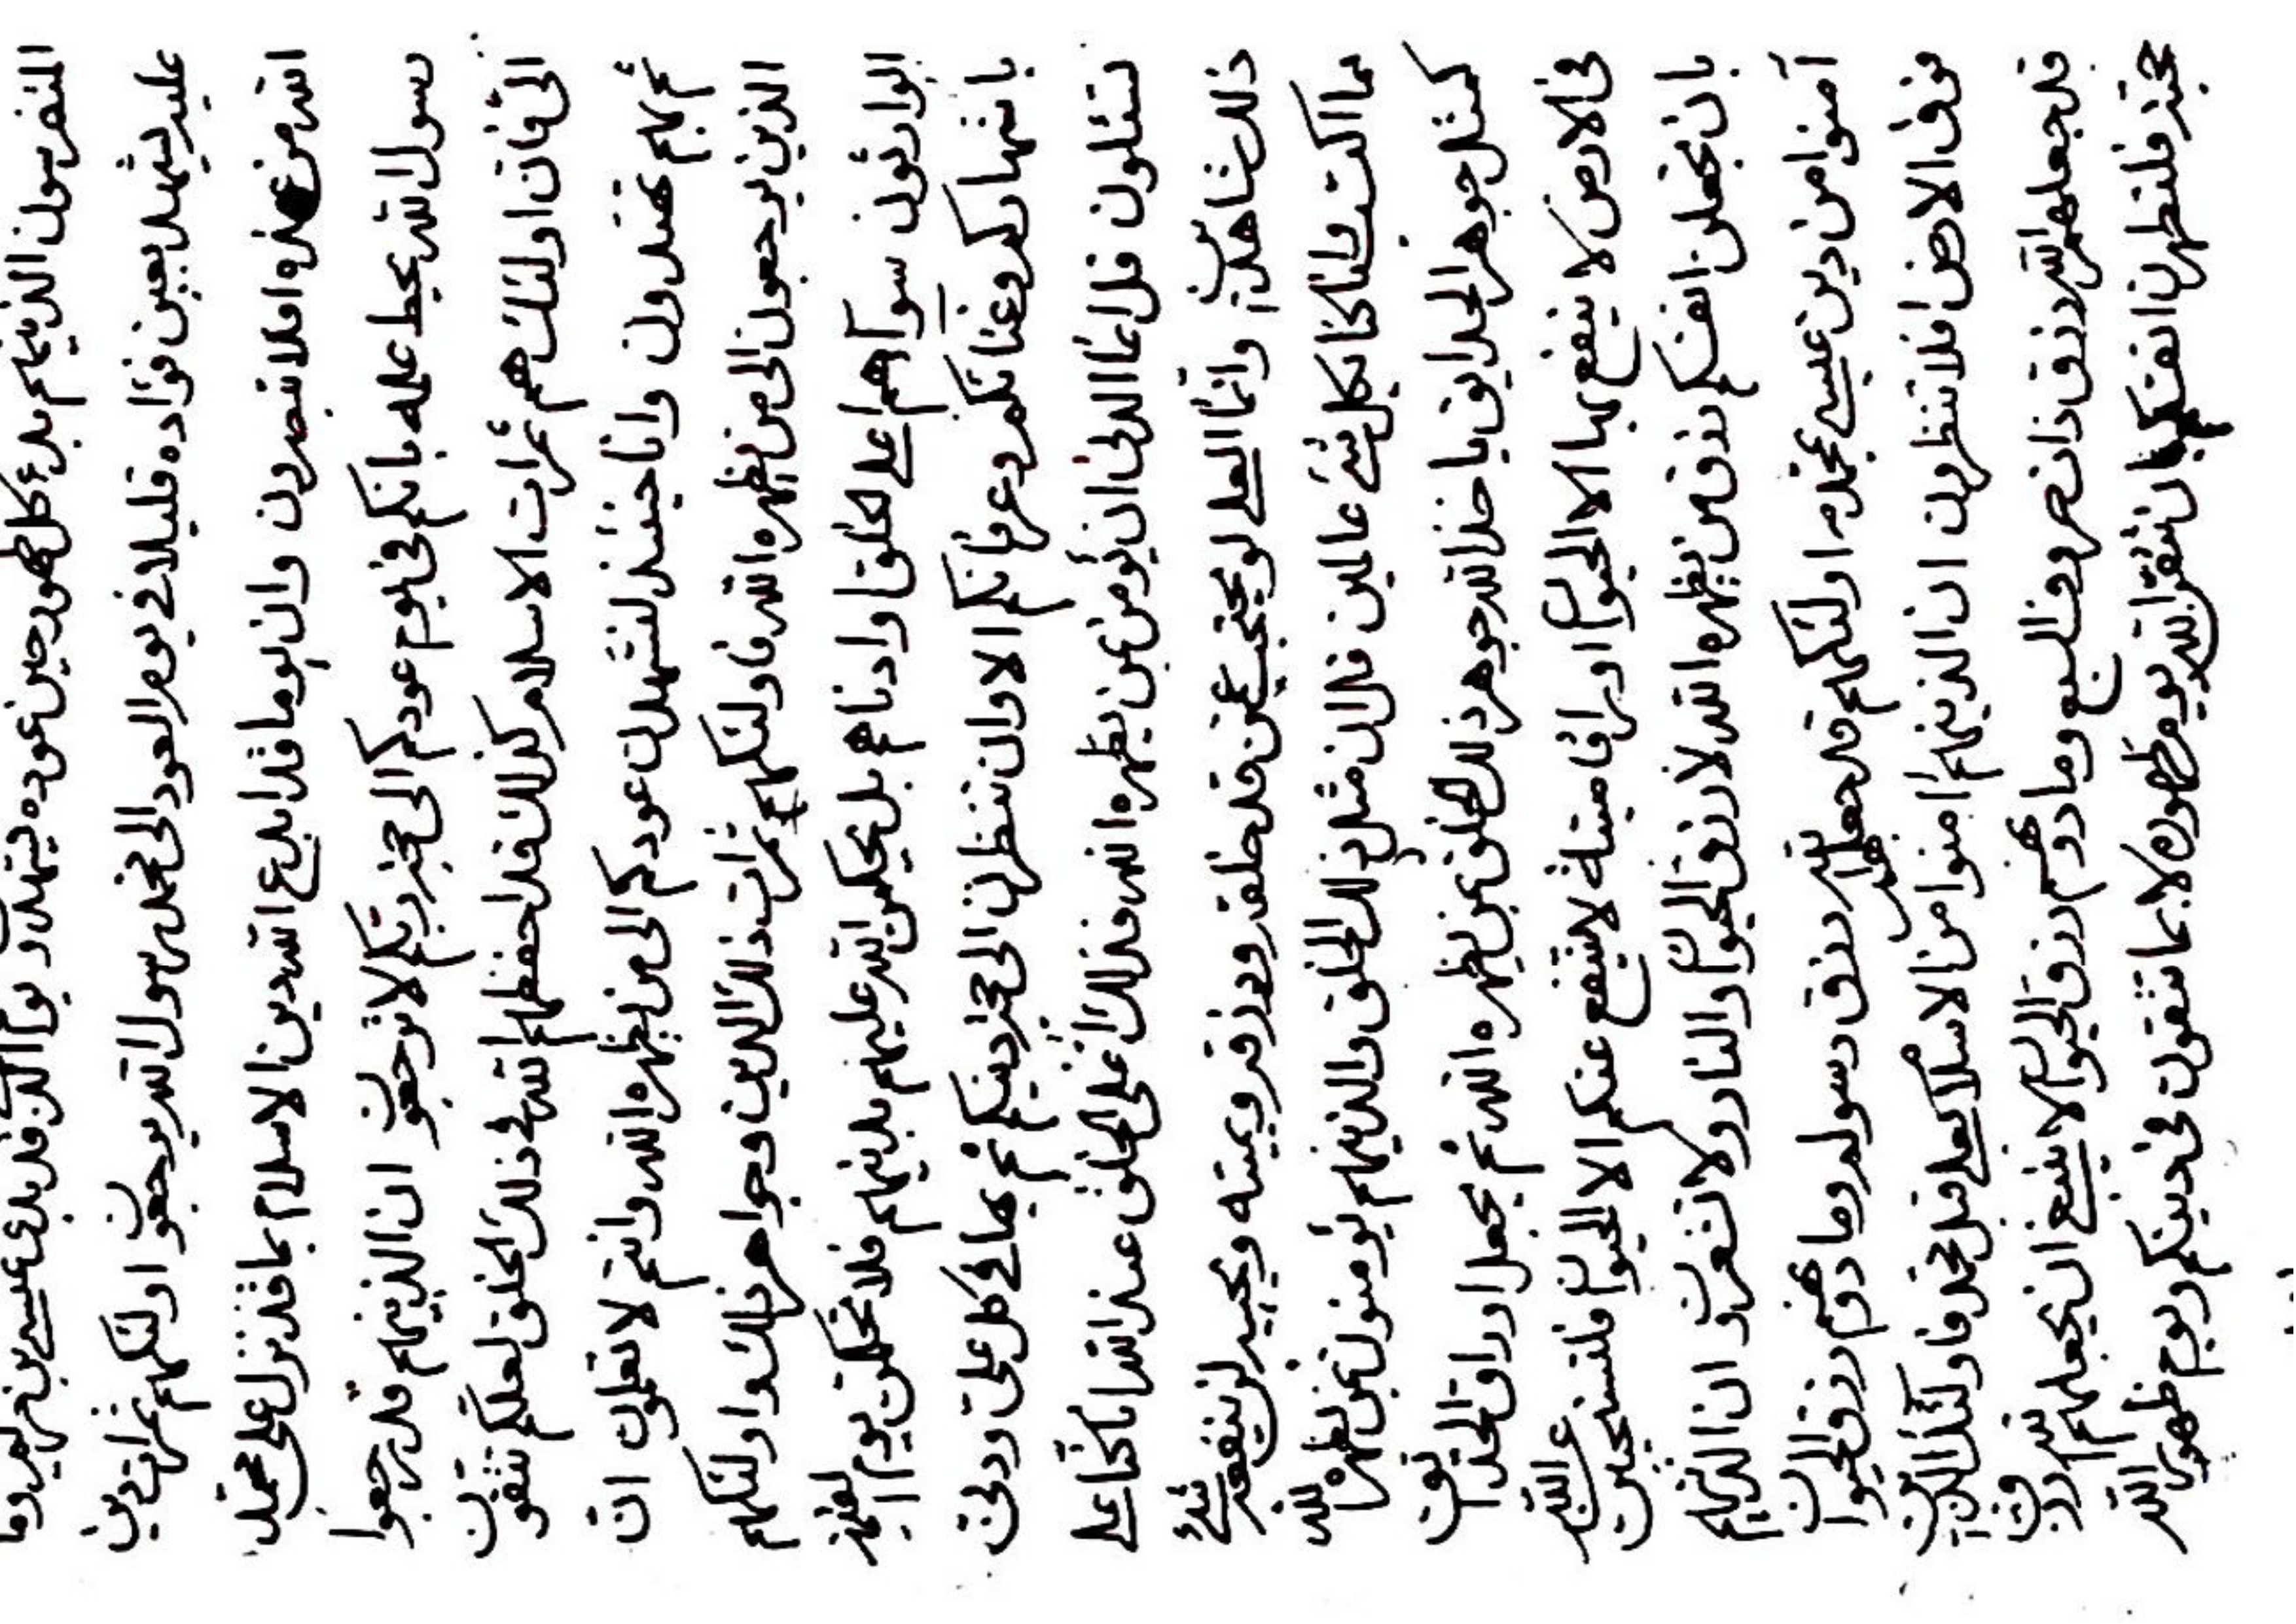 المتفرسون الذينهم بدء كل ظهور حين عوده يشهدون يوم الذي قد بدء عيسى بن مريم وما
عليه ليشهد بعين فؤاده قليلا في يوم العود الى محمد رسول الله يرجعون اولئكهم ثمرات دين
الله من عنده افلا تبصرون وان يوما قد ابدع الله دين الاسلام بما قد نزل على محمد
رسول الله محيط علمه بانكم في يوم عودكم الى ربكم لا ترجعون ان الذينهم قد رجعوا
الى فان اولئك هم ثمرات الاسلام كذلك قد احفظهم الله في ذلك الخلق لعلكم تتقون
ثم بهم تهتدون وانا حينئذ لنشهدن عودكم الى من يظهره الله وانتم لا تعلمون ان
الذين يرجعون الى من يظهره الله فاولئكهم ثمرات ذلك الدين وجواهر ذلك واولئكهم
الوارثون سوآء هم اعلى الخلق او ادناهم بل يحكمن الله عليهم بدينهم فلا تحكمن يوم القيمة
باشتهاركم وغنائكم وعرفانكم الا وان تنظرن الى دينكم ثم بها في كل على ودنى
لتسئلون قل انما الدنى ان يؤمن بمن يظهره الله فذلك اعلى الخلق عند الله انا كنا على
ذلك شاهدين وانما العلى لو يحتجب عمن قد خلقه ورزقه ويميته ويحييه لن ينفعه شئ
مما اكتسب وانا كنا بكل شئ عالمين قل ان مثل ذلك الخلق والذينهم يؤمنون بمن يظهره الله
كمثل جوهر الحدايق ياخذ الله جوهر ذلك الخلق بمن يظهره الله ثم يجعل اوراق الحدايق
في الارض لا ينتفع بها الا الحيوان اوراقا ميتة لا ينتفع عنكم الا الحيوان فلتستحيين عن الله
بان تجعلن انفسكم رزق من يظهره الله لا رزق الحيوان والنار ولا تشعرون ان الذينهم
آمنوا من دين عيسى بمحمد اولئكهم قد جعلهم الله رزق رسوله وما دونهم رزق الحيوان
فوق الارض افلا تنظرون ان الذينهم امنوا من الاسلام بعلي قبل محمد فاولئك الذين
قد جعلهم الله رزق ذات حروف السبع وما دونهم رزق الحيوان لا ينبغي ان يجعلهم الله رزق
فلتطهرن انفسكم بان تتقن الله يوم ظهوره لا بما تتقون في دينكم ويوم ظهور الله